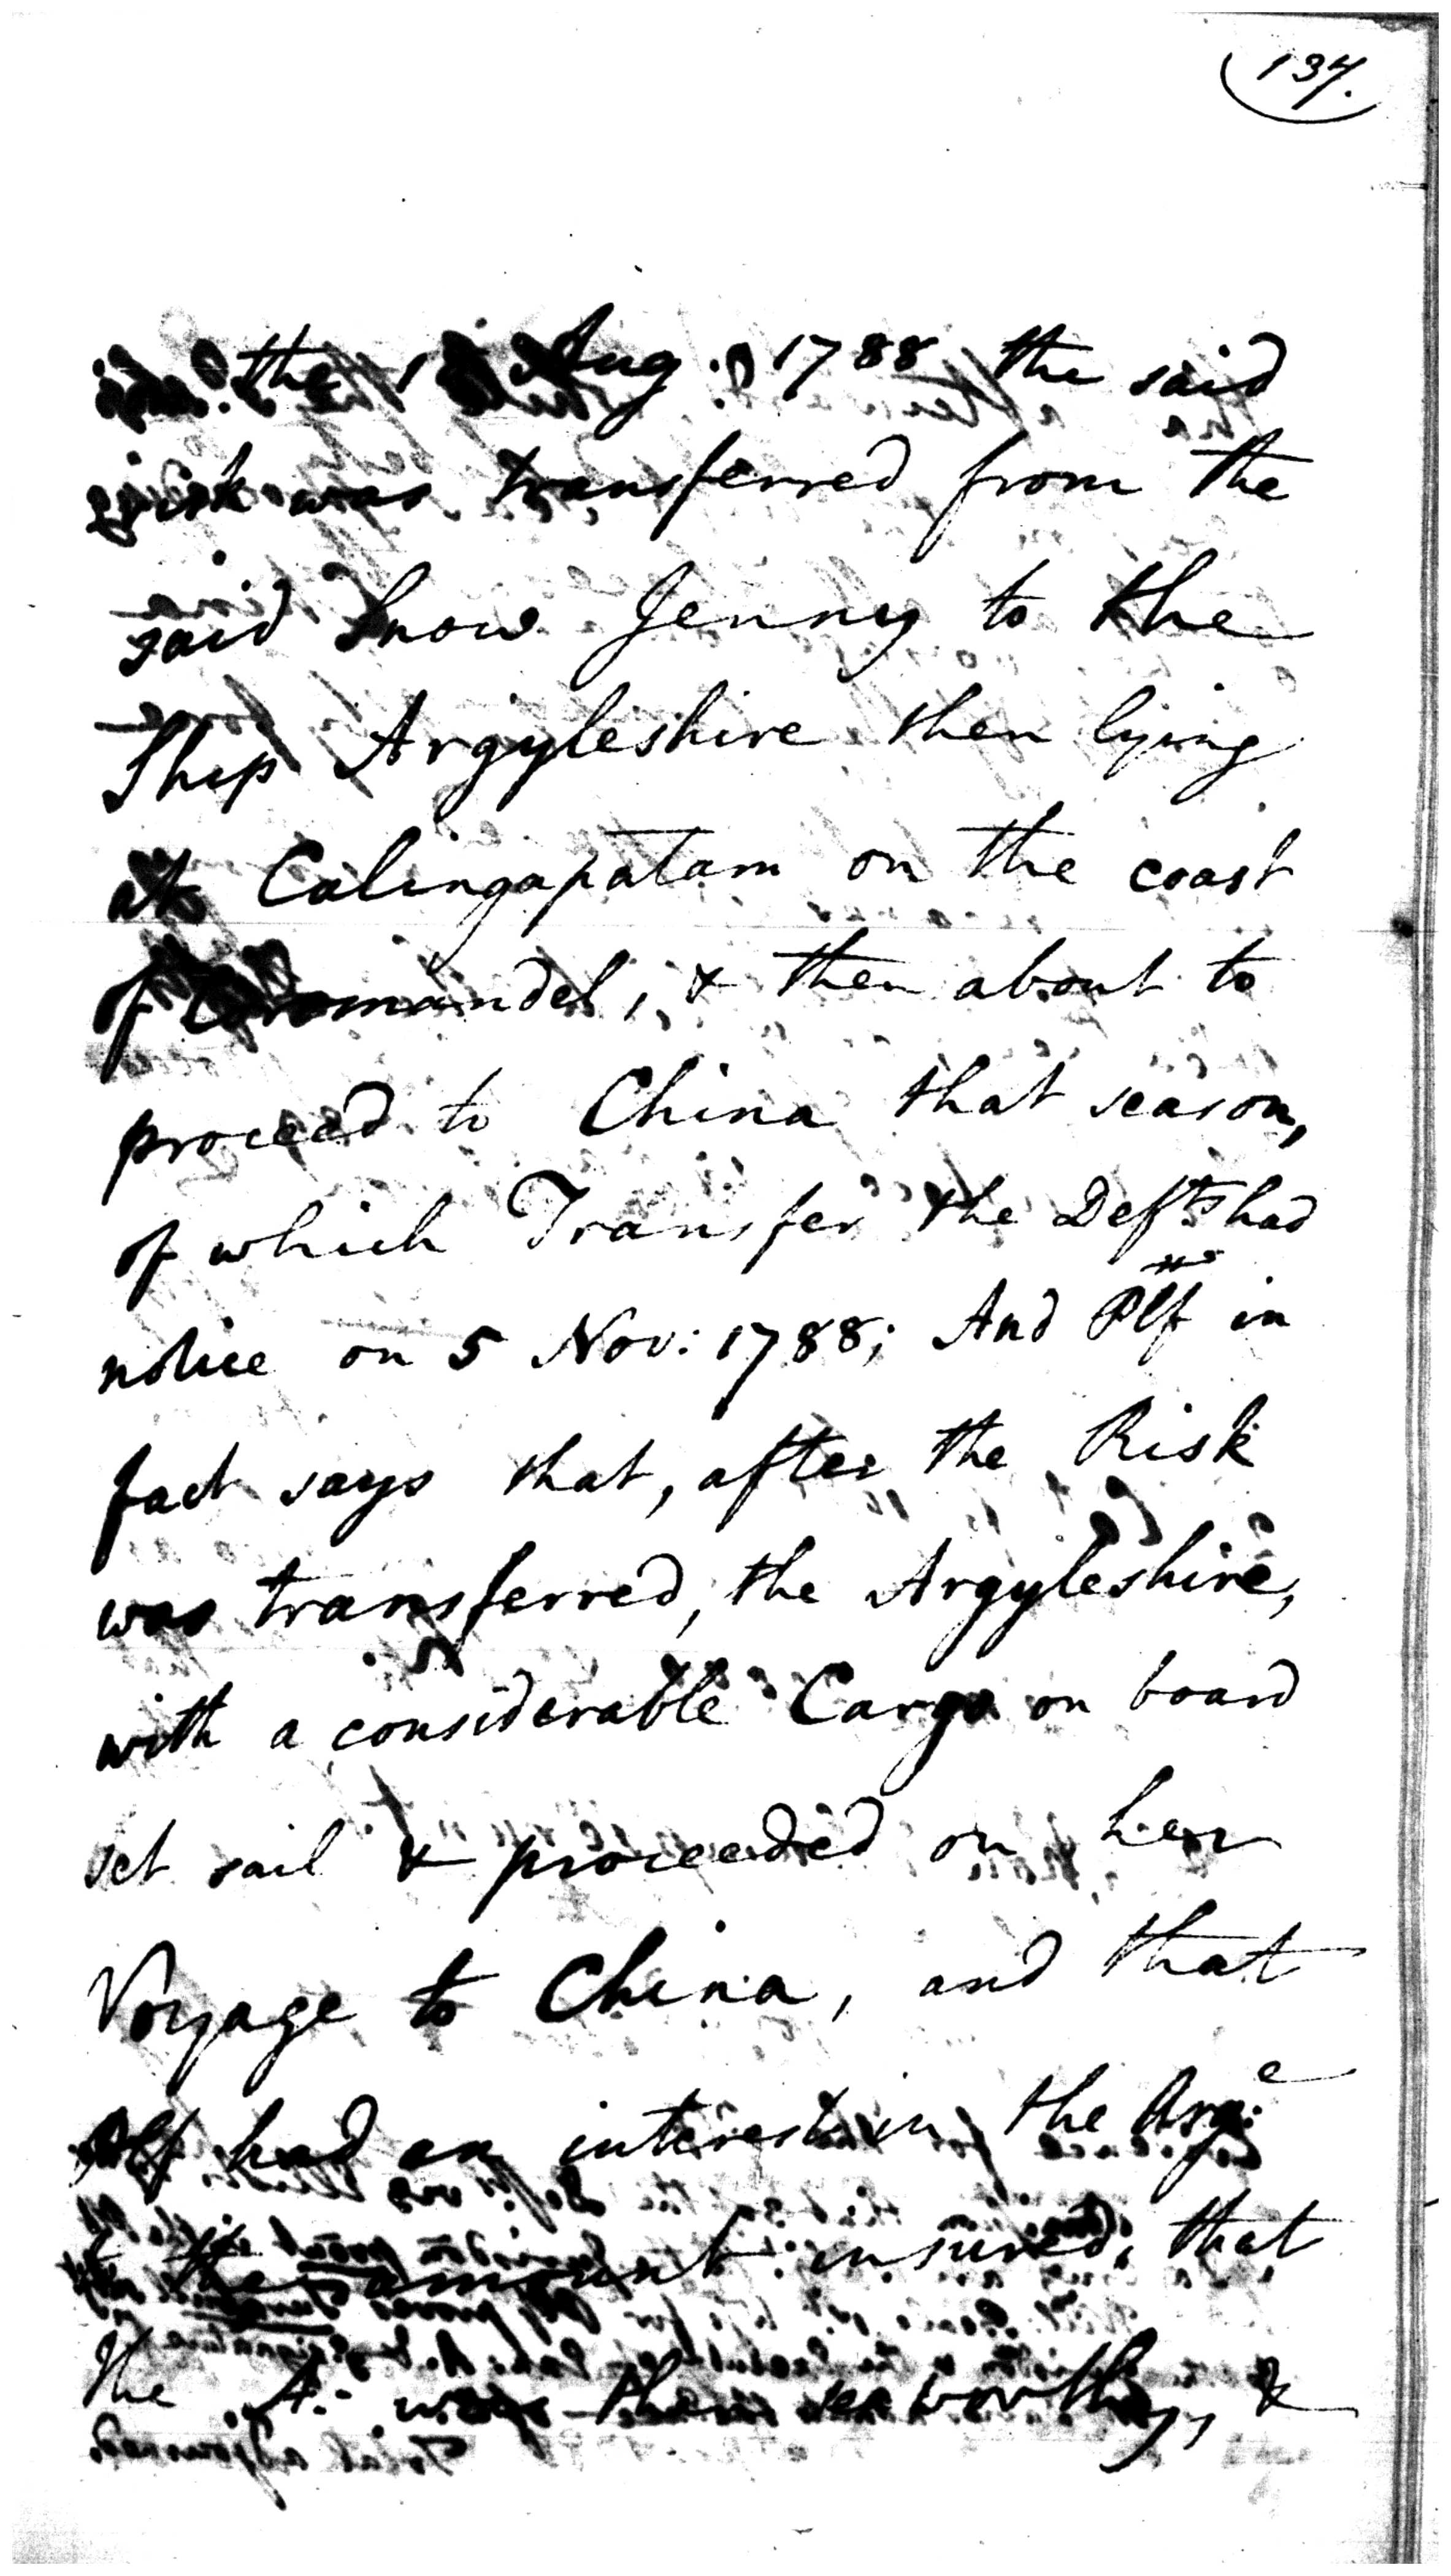 137.
the 1 Aug. 1788 the said
risk was transferred from the
said Snow Jenny to the
Ship Argyleshire then lying
at Calingapatam on the coast
of Coromandel, & then about to
proceed to China that season,
of which Transfer the Defts had
notice on 5 Nov: 1788; And Plf in
fact says that, after the Risk
was transferred, the Argyleshire,
with a considerable Cargo on board
set sail & proceeded on her
Voyage to China, and that
Plf had an interest in the Arg:e
to the amount insured, that
the A: was then seaworthy, &